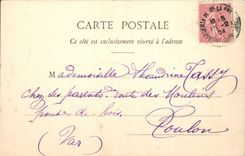 CARTE POSTALE
Ce côté est exclusivement réservé à l'adresse
Mademoiselle Alexandrine Tassy
chez ses parents route des Moulins
pont de bois
Toulon
(Var)